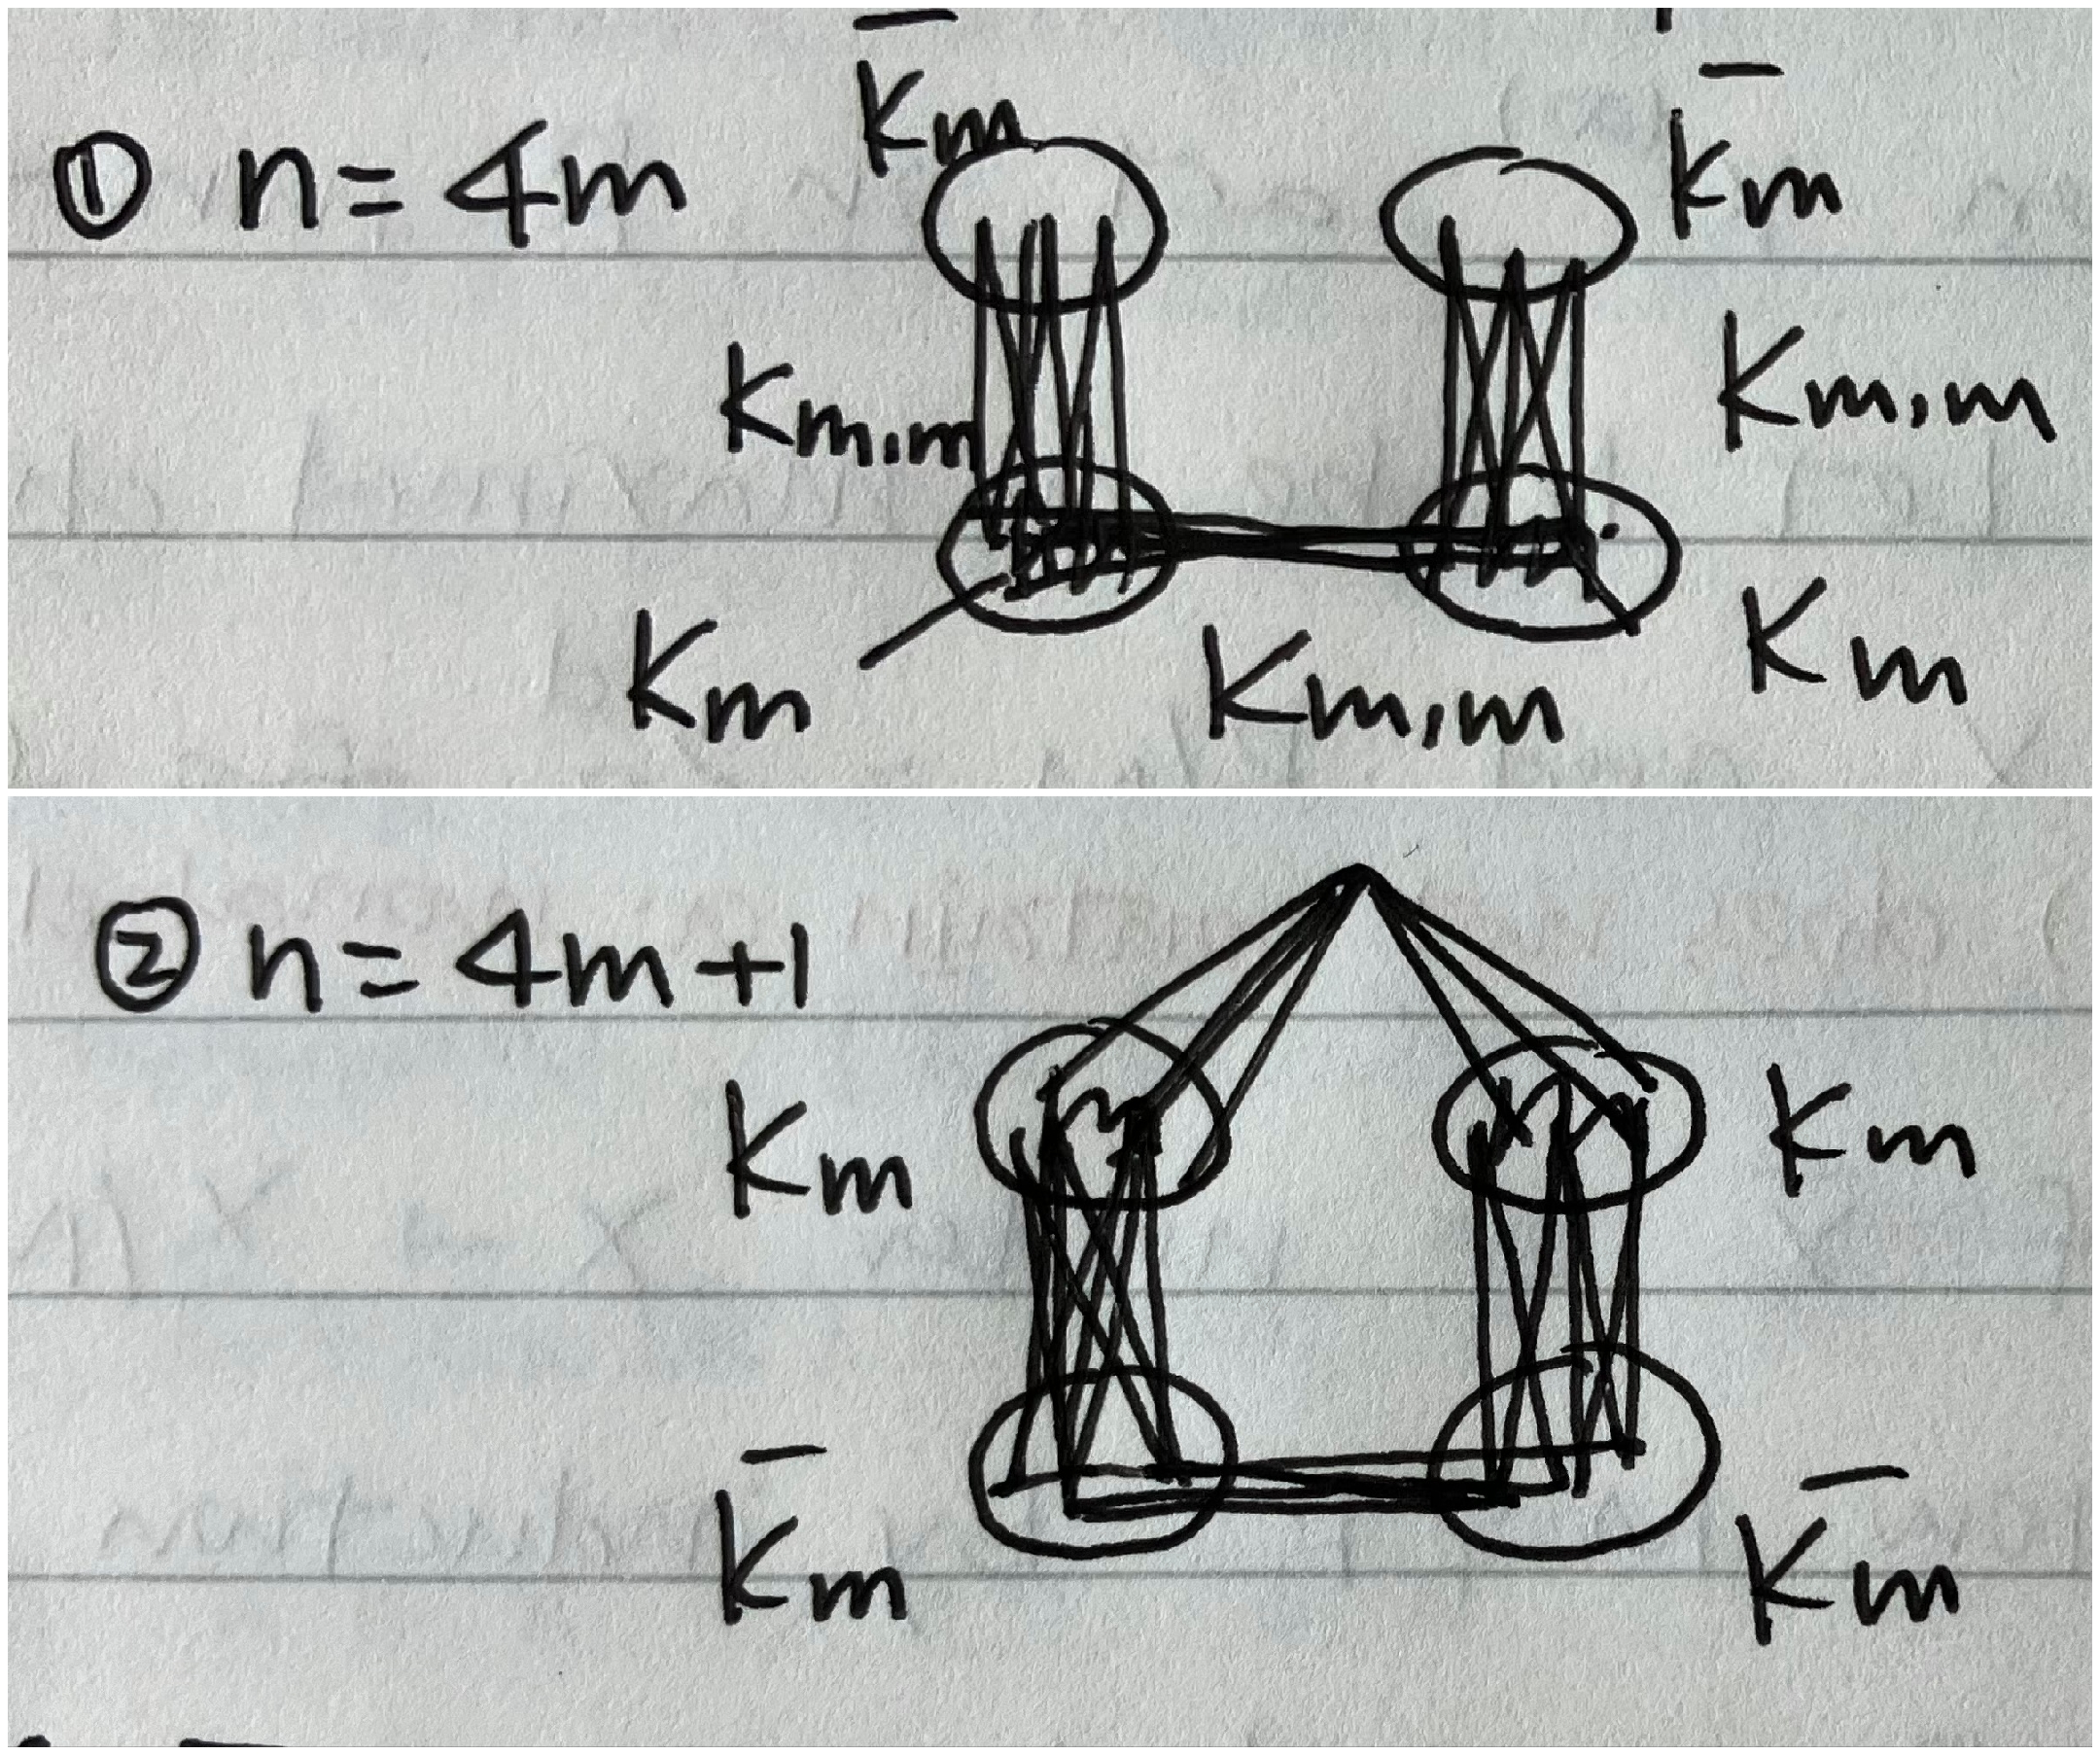 ① n = 4m
K̅m
K̅m
Km,m
Km,m
Km
Km,m
Km
② n = 4m+1
Km
Km
K̅m
K̅m